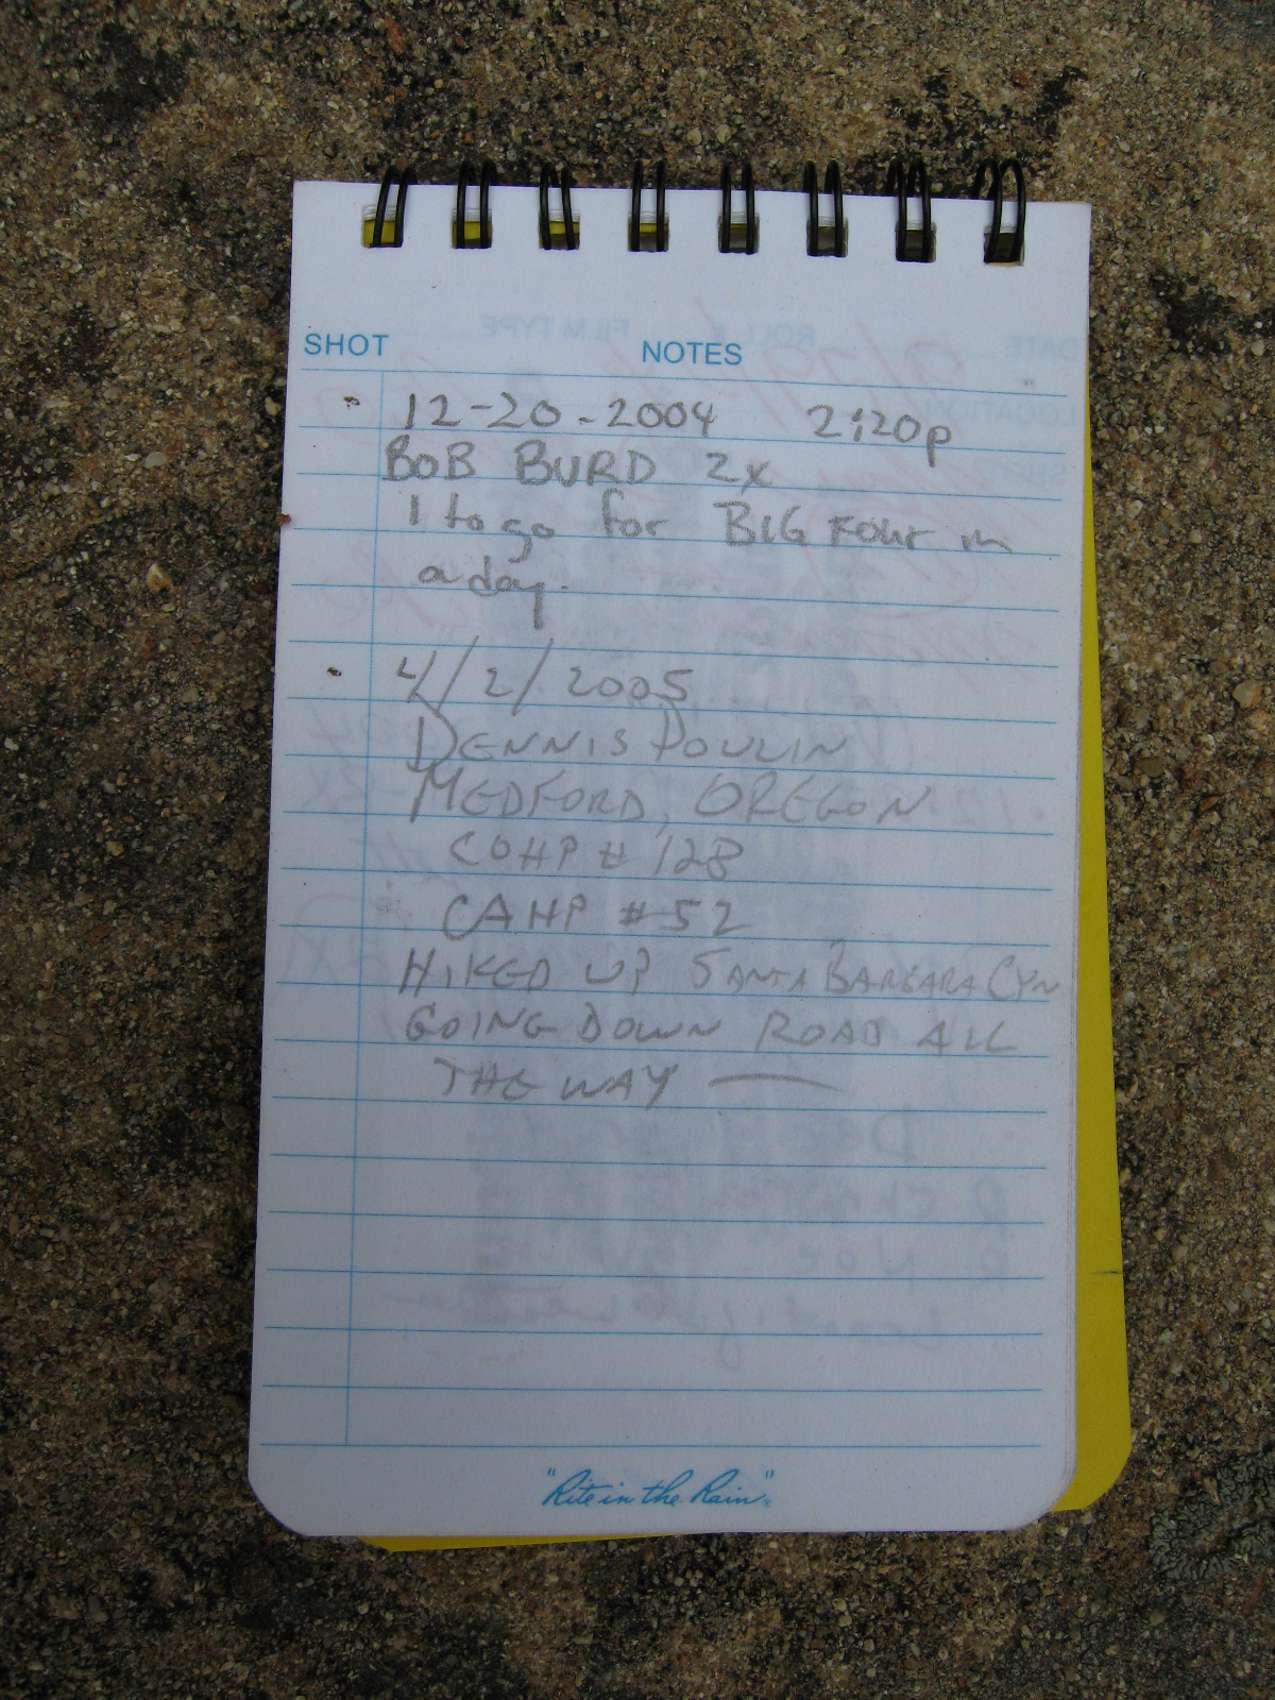 SHOT NOTES
12-20-2004 2:20p
BOB BURD 2x
1 to go for BIG FOUR in
a day.
4/2/2005
DENNIS POULIN
MEDFORD, OREGON
COHP # 128
CAHP #52
HIKED UP SANTA BARBARA CYN
GOING DOWN ROAD ALL
THE WAY —
"Rite in the Rain"